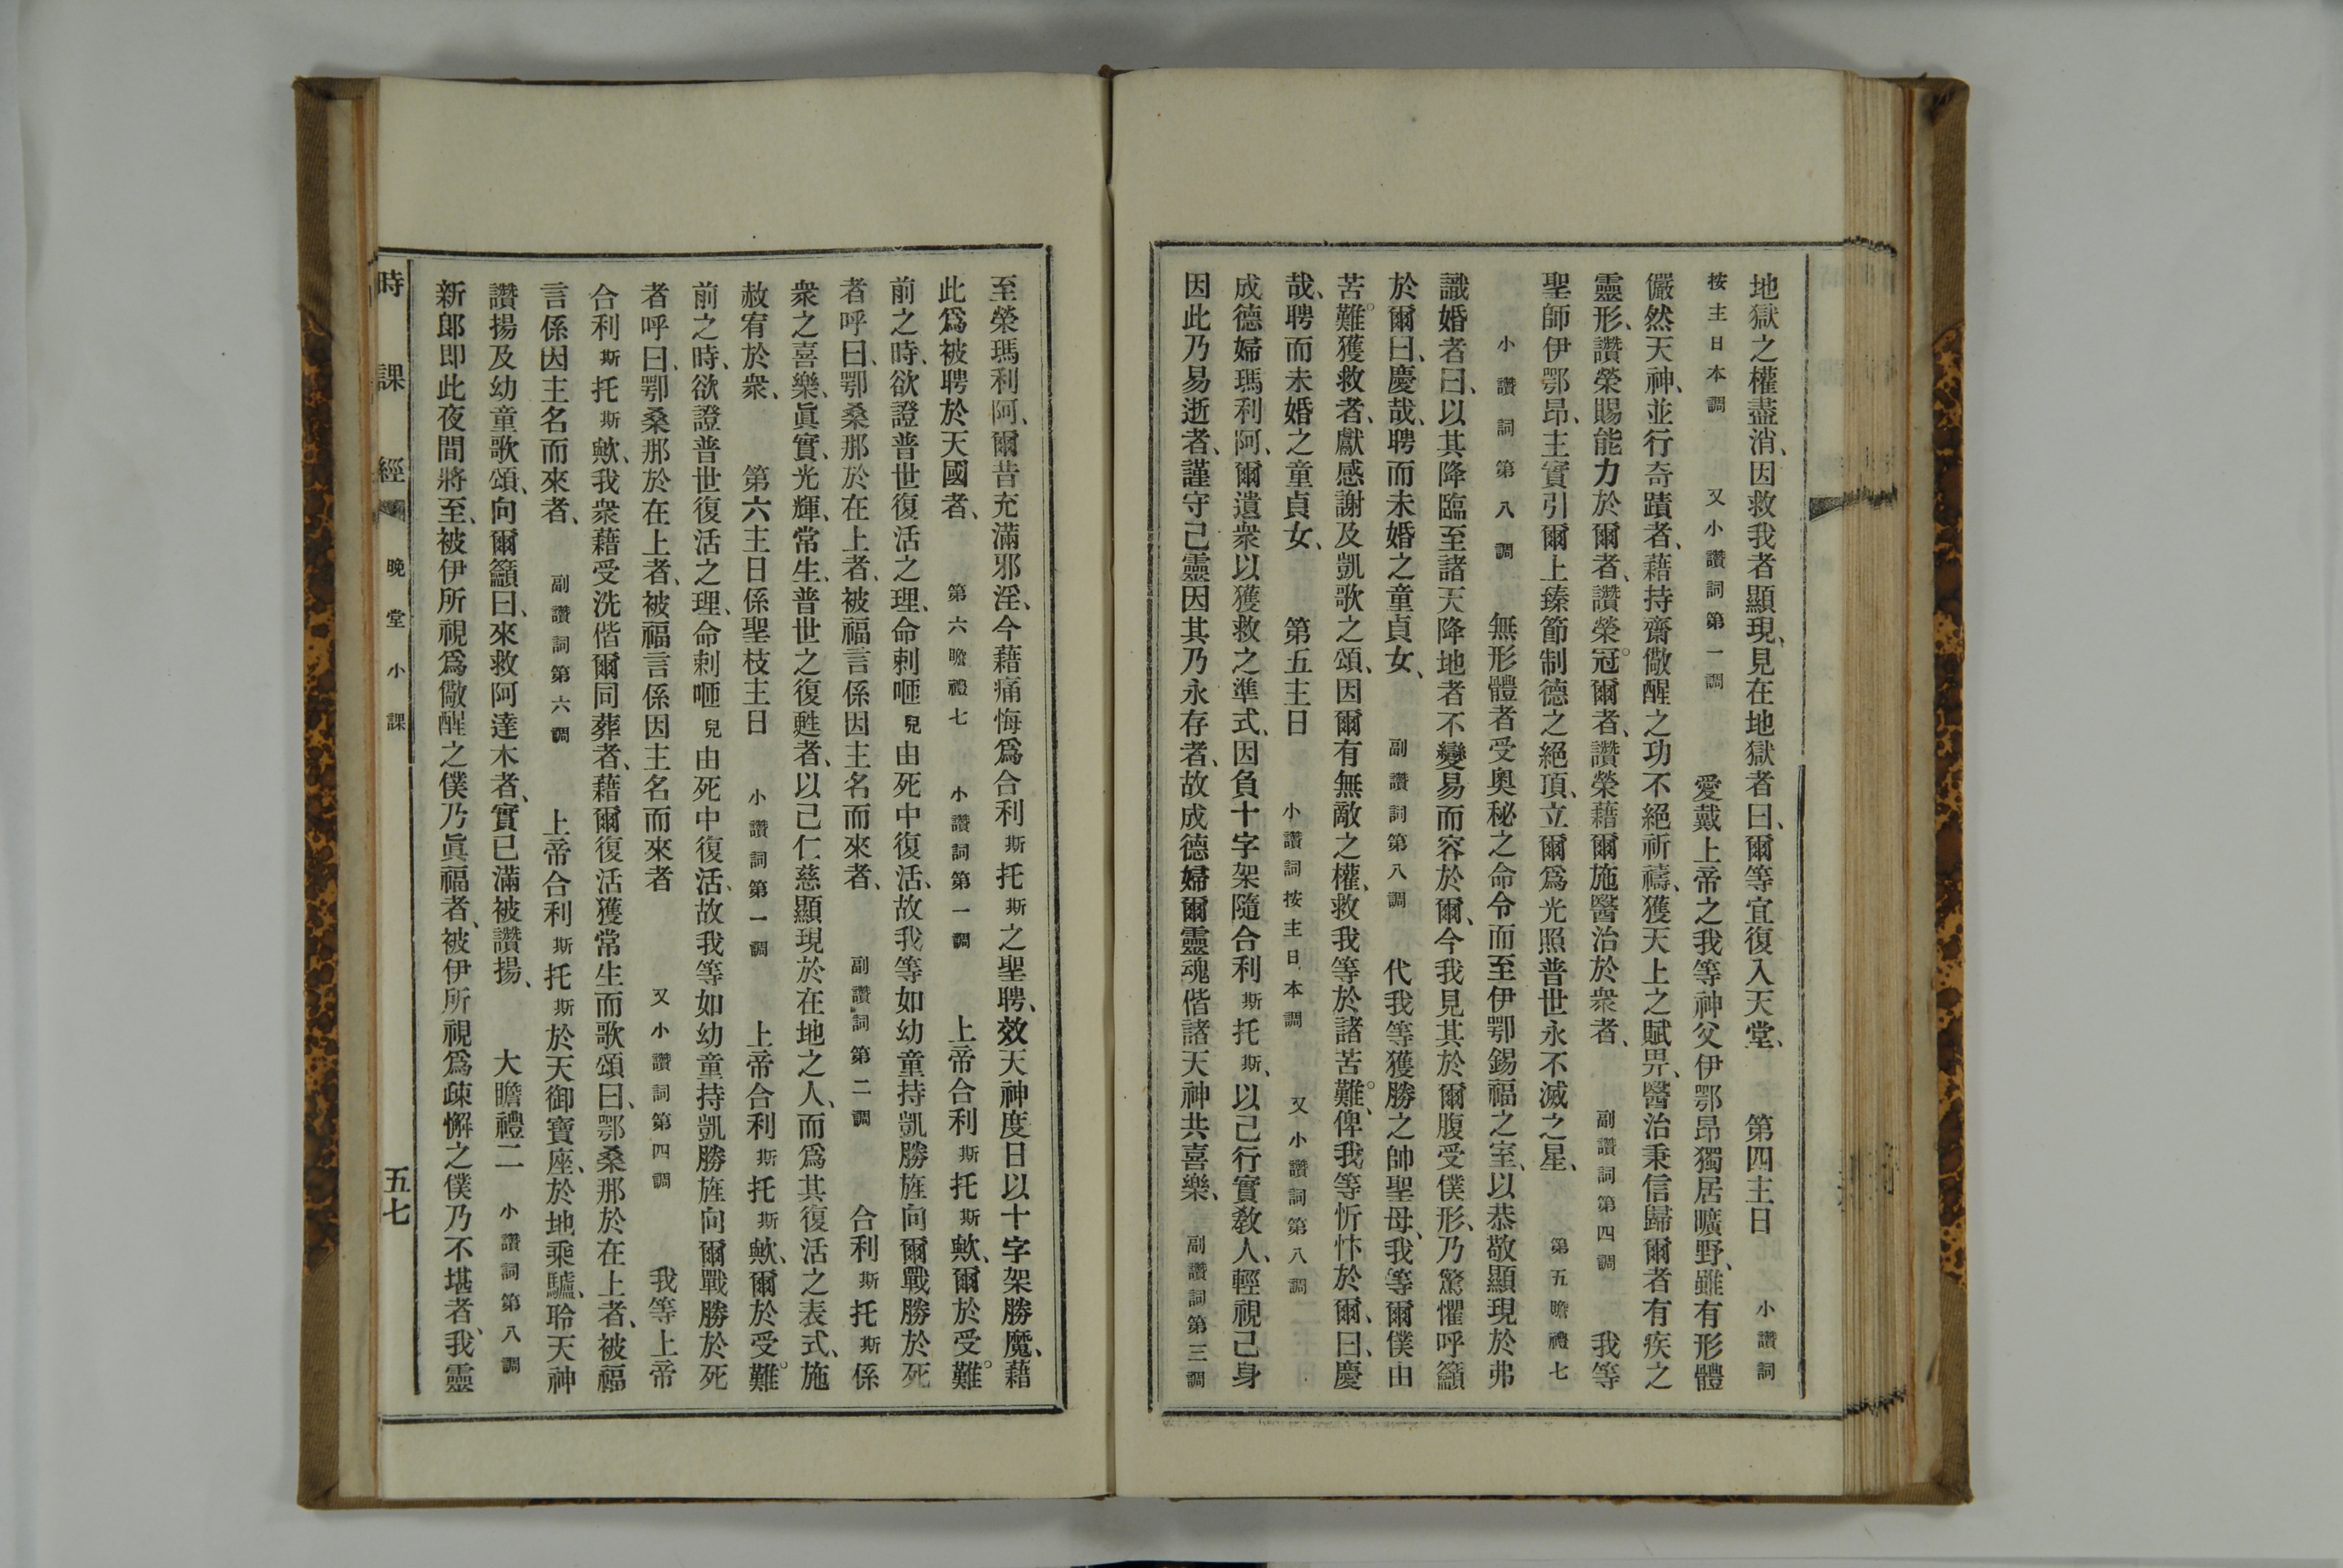 地獄之權盡消、因救我者顯現、見在地獄者曰、爾等宜復入天堂、　第四主日　小讚詞
按主日本調　又小讚詞第一調　愛戴上帝之我等神父伊鄂昂獨居曠野、雖有形體
儼然天神、並行奇蹟者、藉持齋儆醒之功不絕祈禱、獲天上之賦畀、醫治秉信歸爾者有疾之
靈形、讚榮賜能力於爾者、讚榮冠爾者、讚榮藉爾施醫治於衆者、　副讚詞第四調　我等
聖師伊鄂昂、主實引爾上臻節制德之絕頂、立爾爲光照普世永不滅之星、　第五瞻禮七
小讚詞第八調　無形體者受奧秘之命令而至伊鄂錫福之室、以恭敬顯現於弗
識婚者曰、以其降臨至諸天降地者不變易而容於爾、今我見其於爾腹受僕形、乃驚懼呼籲
於爾曰、慶哉、聘而未婚之童貞女、　副讚詞第八調　代我等獲勝之帥聖母、我等爾僕由
苦難。獲救者、獻感謝及凱歌之頌、因爾有無敵之權、救我等於諸苦難。俾我等忻忭於爾、曰、慶
哉、聘而未婚之童貞女、　第五主日　小讚詞按主日本調　又小讚詞第八調
成德婦瑪利阿、爾遺衆以獲救之準式、因負十字架隨合利斯托斯、以己行實教人、輕視己身
因此乃易逝者、謹守己靈因其乃永存者、故成德婦爾靈魂偕諸天神共喜樂、　副讚詞第三調
至榮瑪利阿、爾昔充滿邪淫、今藉痛悔爲合利斯托斯之聖聘、效天神度日以十字架勝魔、藉
此爲被聘於天國者、　第六瞻禮七　小讚詞第一調　上帝合利斯托斯歟、爾於受難。
前之時、欲證普世復活之理、命剌咂兒由死中復活、故我等如幼童持凱勝旌向爾戰勝於死
者呼曰、鄂桑那於在上者、被福言係因主名而來者、　副讚詞第二調　合利斯托斯係
衆之喜樂、眞實、光輝、常生、普世之復甦者、以己仁慈顯現於在地之人、而爲其復活之表式、施
赦宥於衆、　第六主日係聖枝主日　小讚詞第一調　上帝合利斯托斯歟、爾於受難。
前之時、欲證普世復活之理、命剌咂兒由死中復活、故我等如幼童持凱勝旌向爾戰勝於死
者呼曰、鄂桑那於在上者、被福言係因主名而來者　又小讚詞第四調　我等上帝
合利斯托斯歟、我衆藉受洗偕爾同葬者、藉爾復活獲常生而歌頌曰、鄂桑那於在上者、被福
言係因主名而來者、　副讚詞第六調　上帝合利斯托斯於天御寶座、於地乘驢、聆天神
讚揚及幼童歌頌、向爾籲曰、來救阿達木者、實已滿被讚揚、　大瞻禮二　小讚詞第八調
新郎即此夜間將至、被伊所視爲儆醒之僕乃眞福者、被伊所視爲疎懈之僕乃不堪者、我靈
時課經　晚堂小課　五七